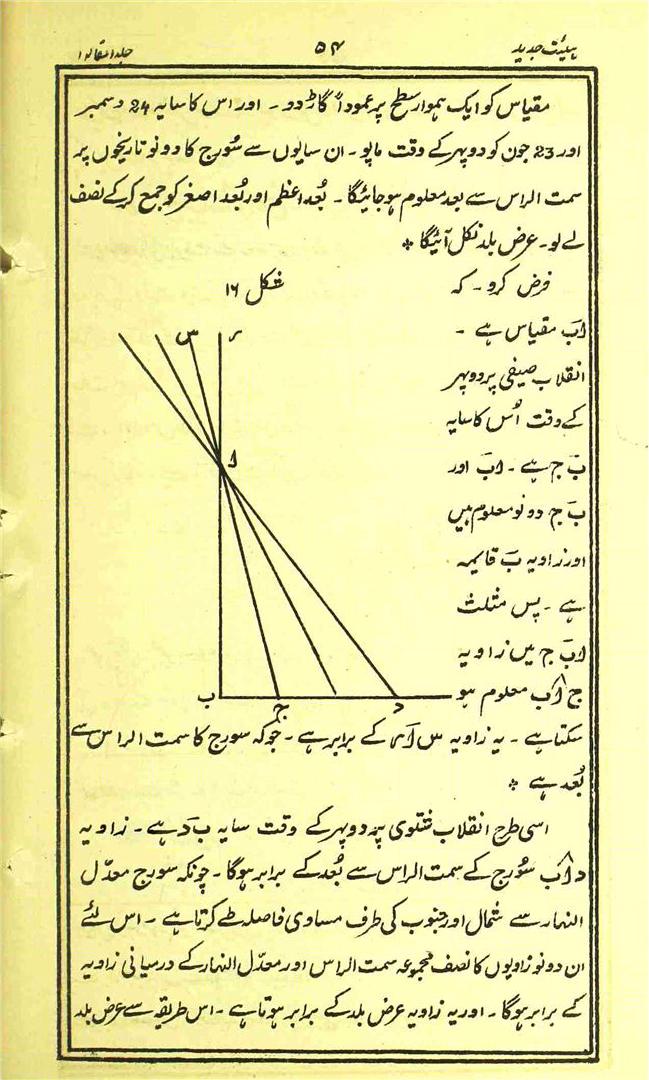 ہیئت جدید ۵۴ جلد ۱ مقالہ ۱
مقیاس کو ایک ہموار سطح پر عموداً گاڑ دو۔ اور اس کا سایہ 24 دسمبر
اور 23 جون کو دوپہر کے وقت ماپو۔ ان سایوں سے سُورج کا دونو تاریخوں پر
سمت الراس سے بعد معلوم ہو جائیگا۔ بُعد اعظم اور بُعد اصغر کو جمع کر کے نصف
لے لو۔ عرض بلد نکل آئیگا *
فرض کرو۔ کہ
شکل ۱۶
اب مقیاس ہے ۔
انقلاب صیفی پر دوپہر
کے وقت اُس کا سایہ
ب ج ہے ۔ اب اور
ب ج دونو معلوم ہیں
اور زاویہ ب قایمہ
ہے ۔ پس مثلث
اب ج میں زاویہ
ج اب معلوم ہو
س
ر
ا
ب
ج
د
سکتا ہے ۔ یہ زاویہ س ا ر کے برابر ہے ۔ جو کہ سورج کا سمت الراس سے
بُعد ہے *
اسی طرح انقلاب شتوی پر دوپہر کے وقت سایہ ب د ہے ۔ زاویہ
د اب سُورج کے سمت الراس سے بُعد کے برابر ہوگا ۔ چونکہ سورج معدّل
النہار سے شمال اور جنوب کی طرف مساوی فاصلہ طے کرتا ہے ۔ اس لئے
ان دونو زاویوں کا نصف مجموعہ سمت الراس اور معدّل النہار کے درمیانی زاویہ
کے برابر ہوگا ۔ اور یہ زاویہ عرض بلد کے برابر ہوتا ہے ۔ اس طریقہ سے عرض بلد